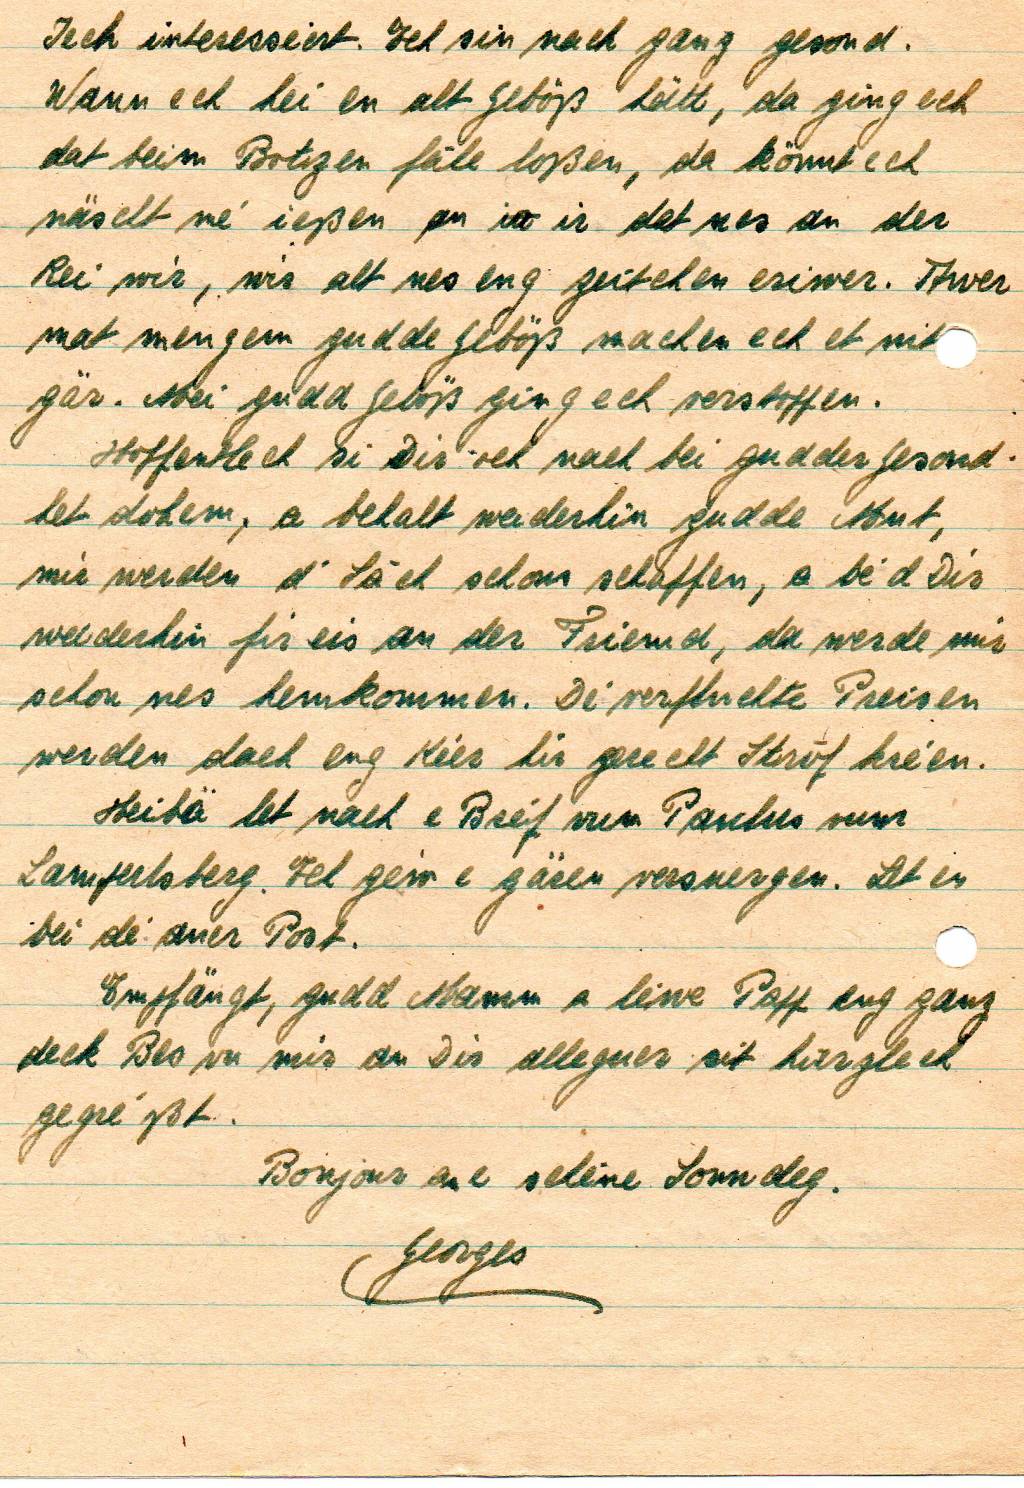 Iech interesséiert. Ech sin nach ganz gesond.
Wann ech hei en alt Geböß hätt, da ging ech
dat beim Botzen fale loßen, da könnt ech
näischt mé ießen an ir dat nes an der
Rei wir, wir alt nes eng zeitchen eriwer. Awer
mat mengem gudde Geböß machen ech et nit
gär. Mei gudd Geböß ging ech verstoffen.
Hoffentlech si Dir och nach bei gudder Gesond-
het dohem, a behalt weiderhin gudde Mut,
mir werden d' Sâch schon schaffen, a bé d Dir
weiderhin fir eis an der Friemd, da werde mir
schon nes hemkommen. Dé verfluchte Preisen
werden dach eng Kéer hir gerecht Strôf kréien.
Heibä let nach e Bréif vum Paulus vum
Lampertsberg. Ech geiw e gären versuergen. Let en
bei dé aner Post.
Empfängt, gudd Mamm a léiwe Papp eng ganz
deck Bes vu mir an Dir alleguer sit härzlech
gegré ßt.
Bonjour an e schéine Sonndeg.
Georges